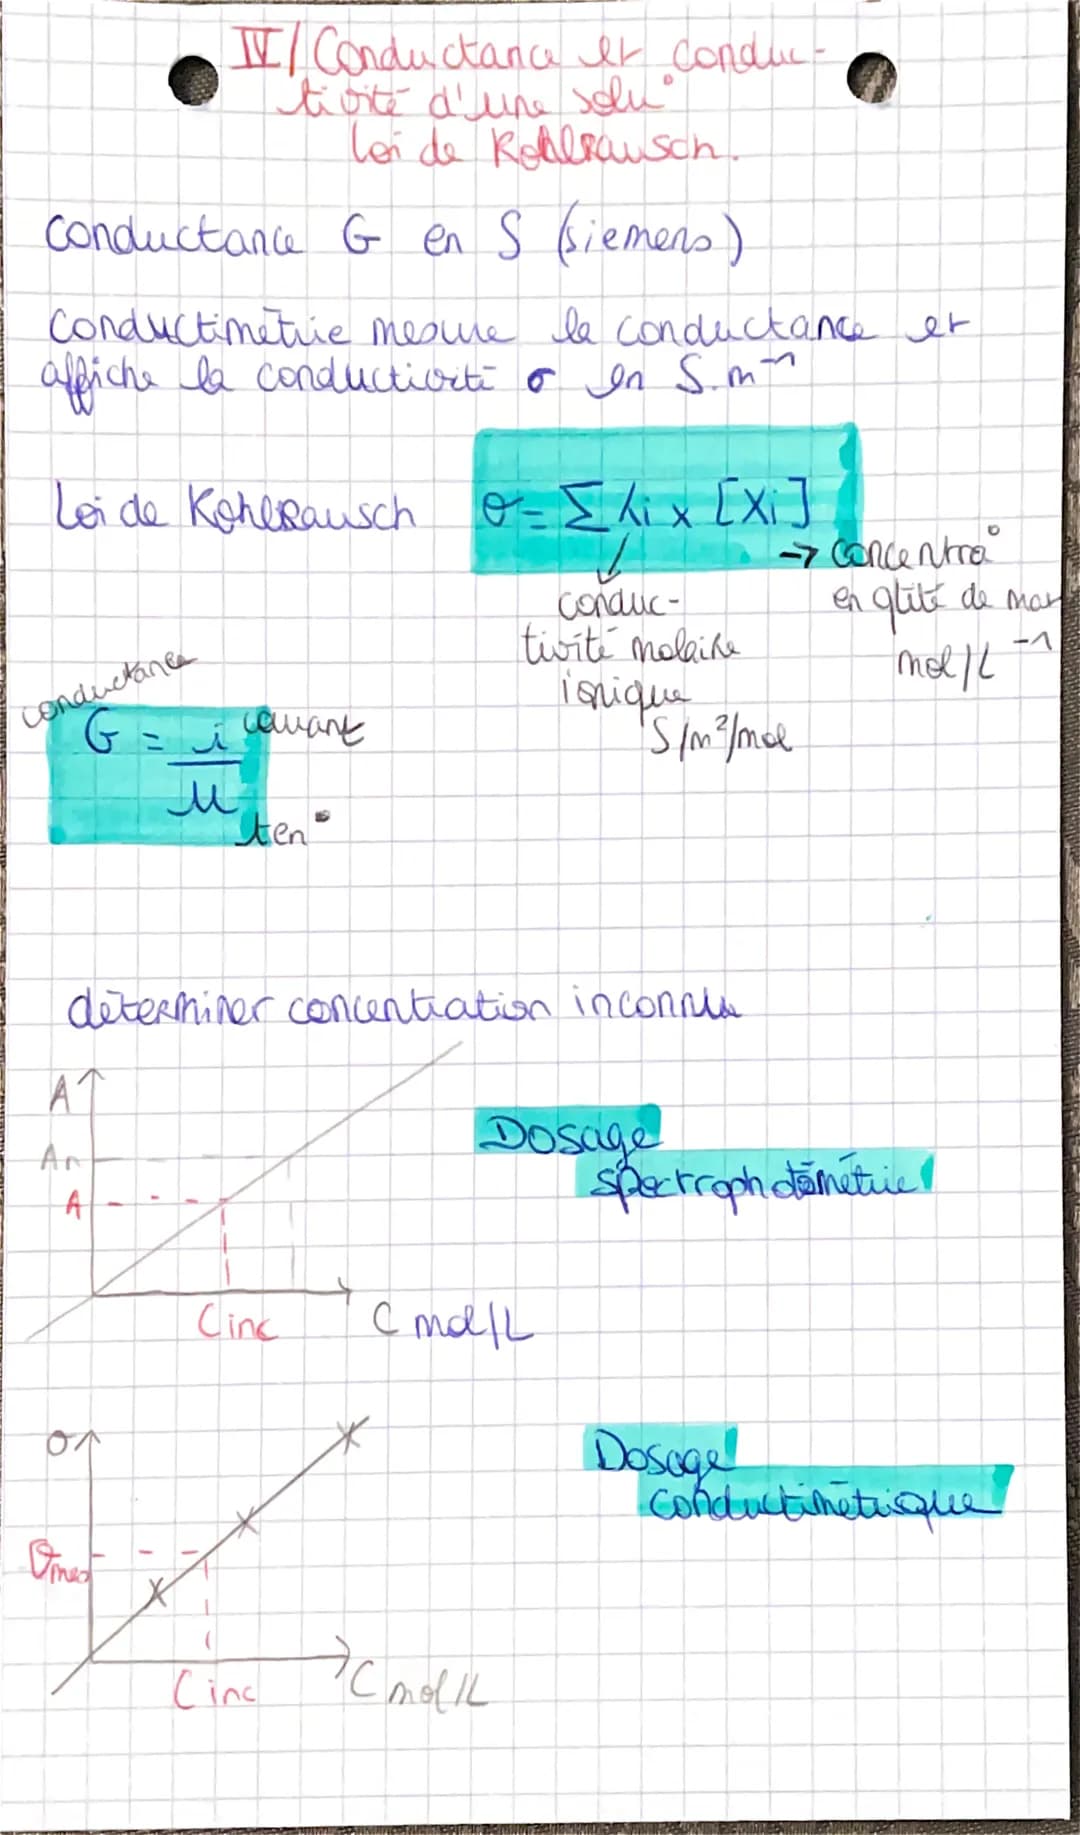 IV/ Conductance et conduc-
tivité d'une solu°
Loi de Kohlrausch.
conductance G en S (siemens)
Conductimétrie mesure la conductance et
affiche la conductivité σ en S.m⁻¹
Loi de Kohlrausch σ = Σ λi x [Xi]
→ concentra°
en qtité de mat
mol/L⁻¹
conduc-
tivité molaire
ionique
S/m²/mol
conductance
G = i courant
u
ten°
déterminer concentration inconnue
A
An
A
Cinc
C mol/L
Dosage
spectrophotométrie
σ
σmes
Cinc
C mol/L
Dosage
conductimétrique